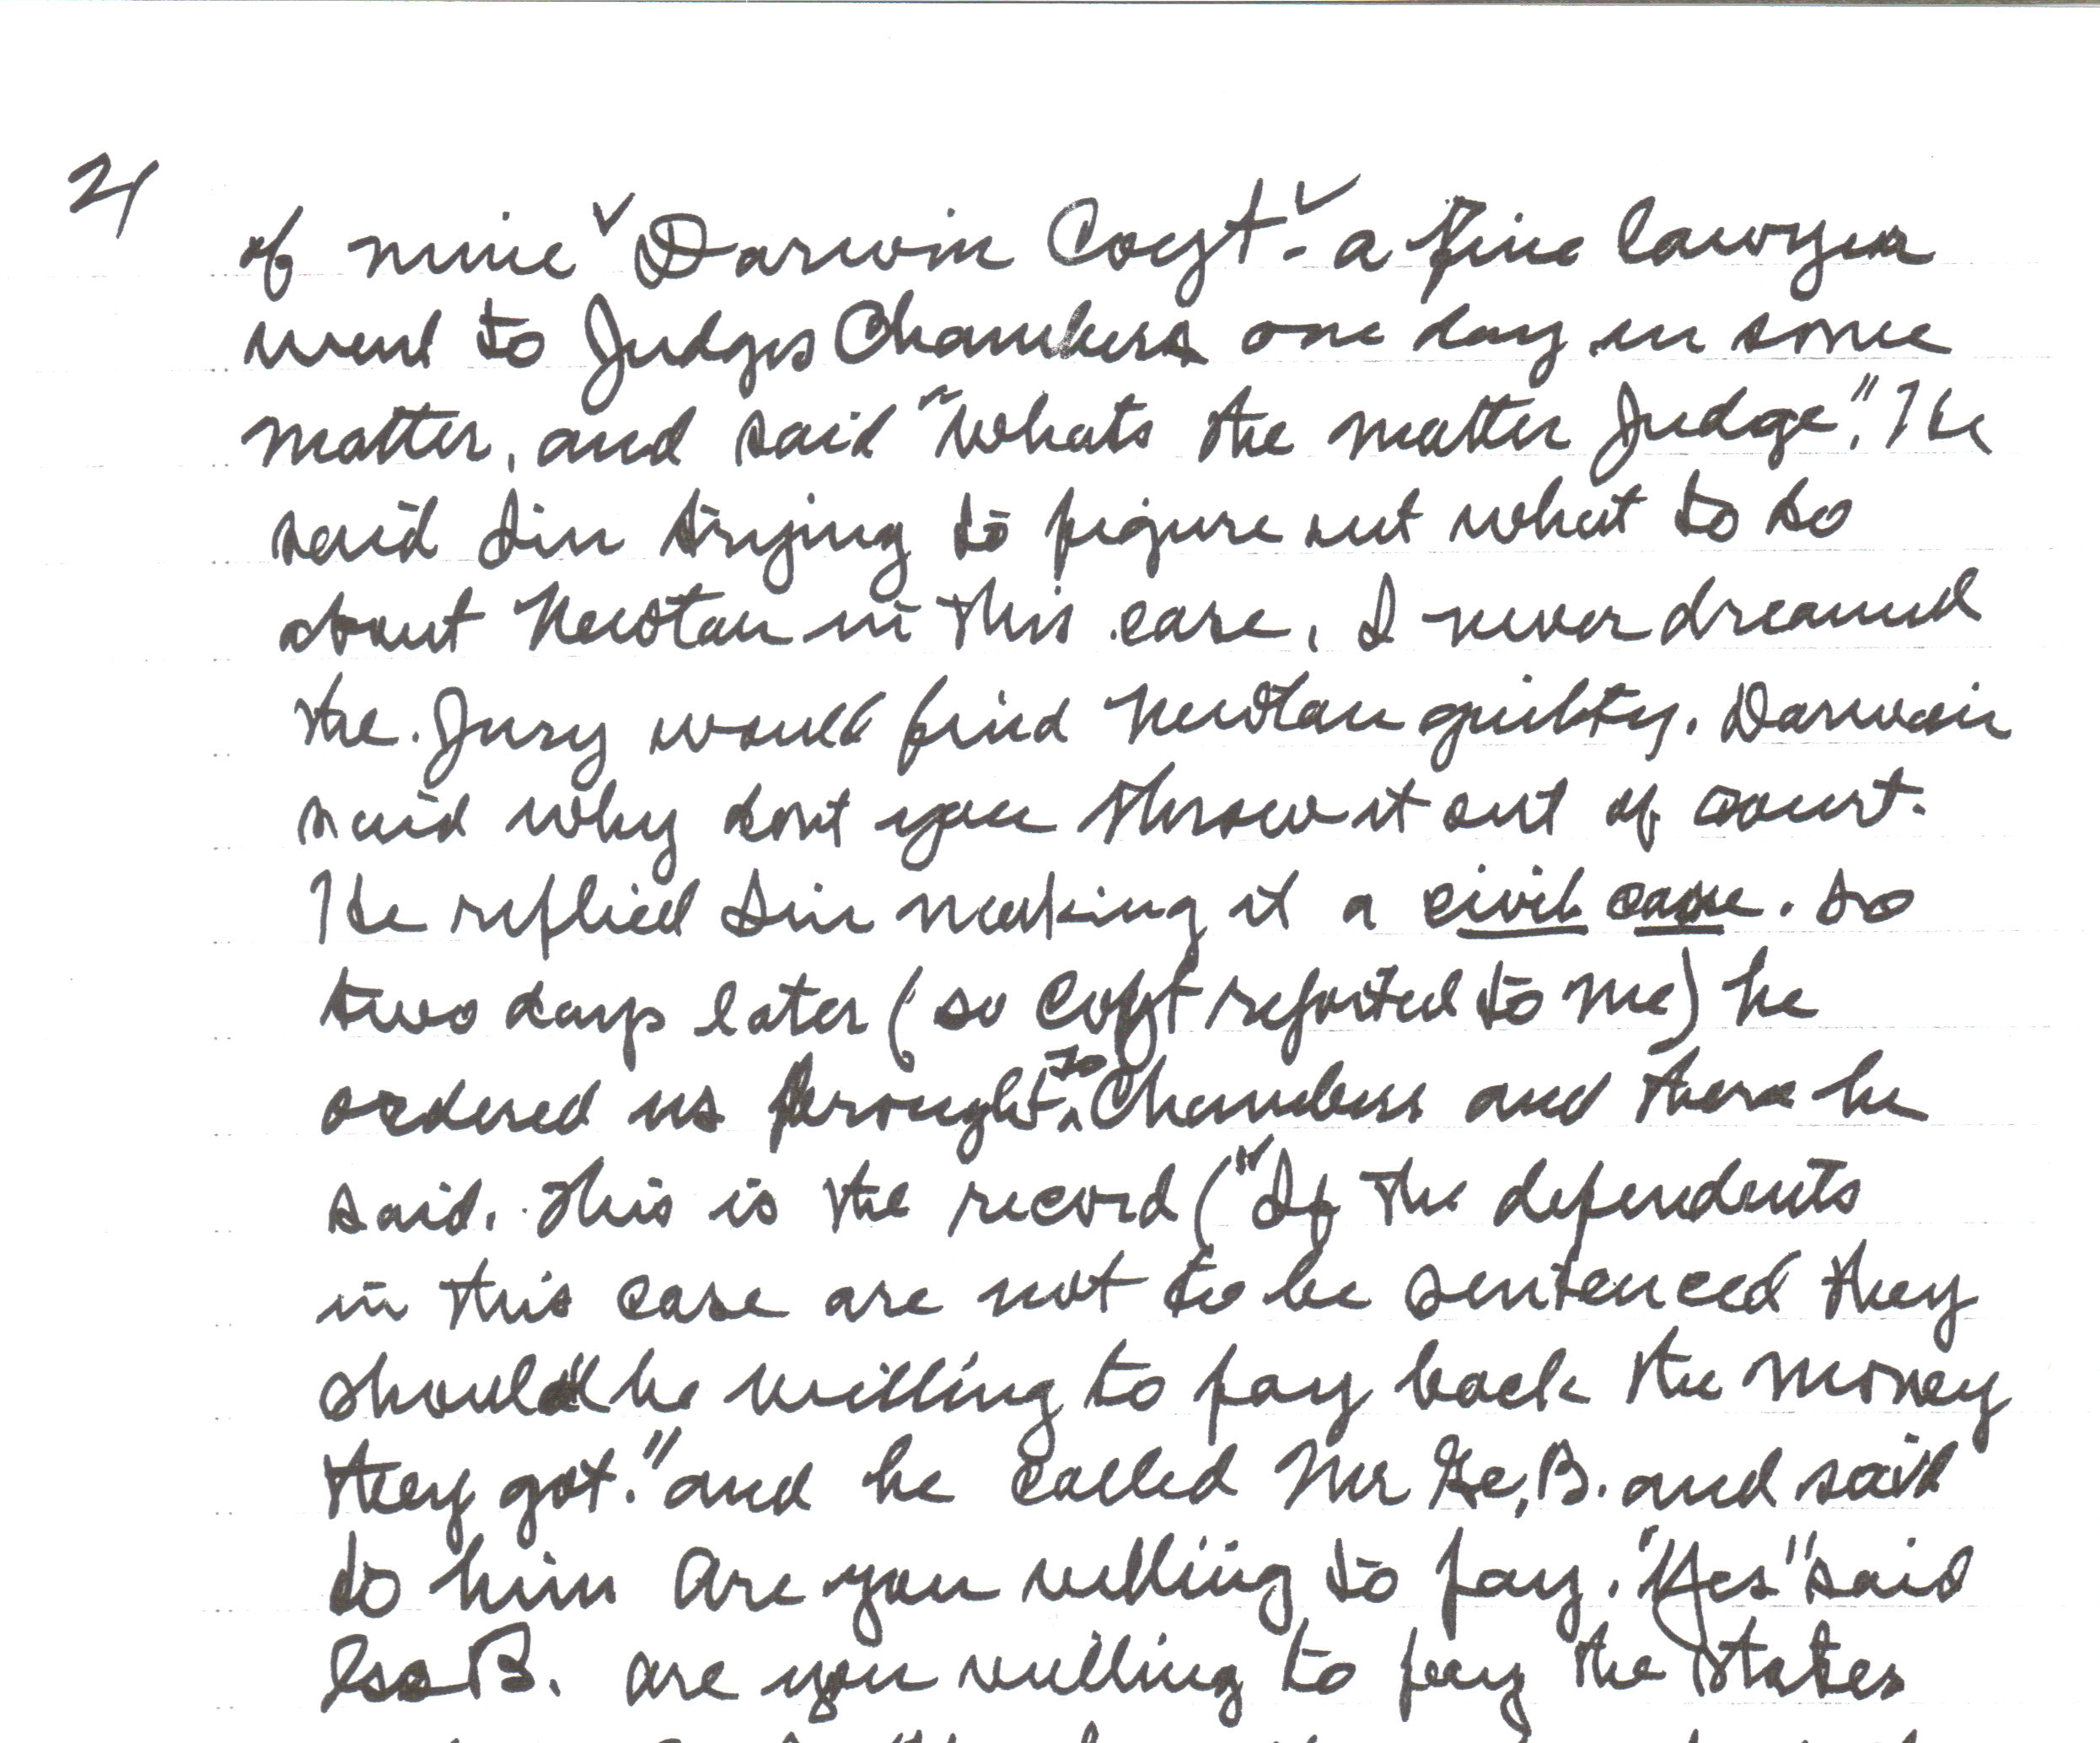 21
of mine Darwin Coyt - a fine lawyer
went to Judges Chambers one day in some
matter, and said "Whats the matter Judge". He
said Im trying to figure out what to do
about Newton in this case, I never dreamed
the Jury would find Newton guilty. Darwin
said why dont you throw it out of court.
He replied Im making it a civil case. so
two days later (so Coyt reported to me) he
ordered us brought to Chambers and there he
said. This is the record ("If the defendents
in this case are not to be sentenced they
should be willing to pay back the money
they got." and he called Mr B. and said
to him Are you willing to pay. "Yes" said
B. are you willing to pay the states